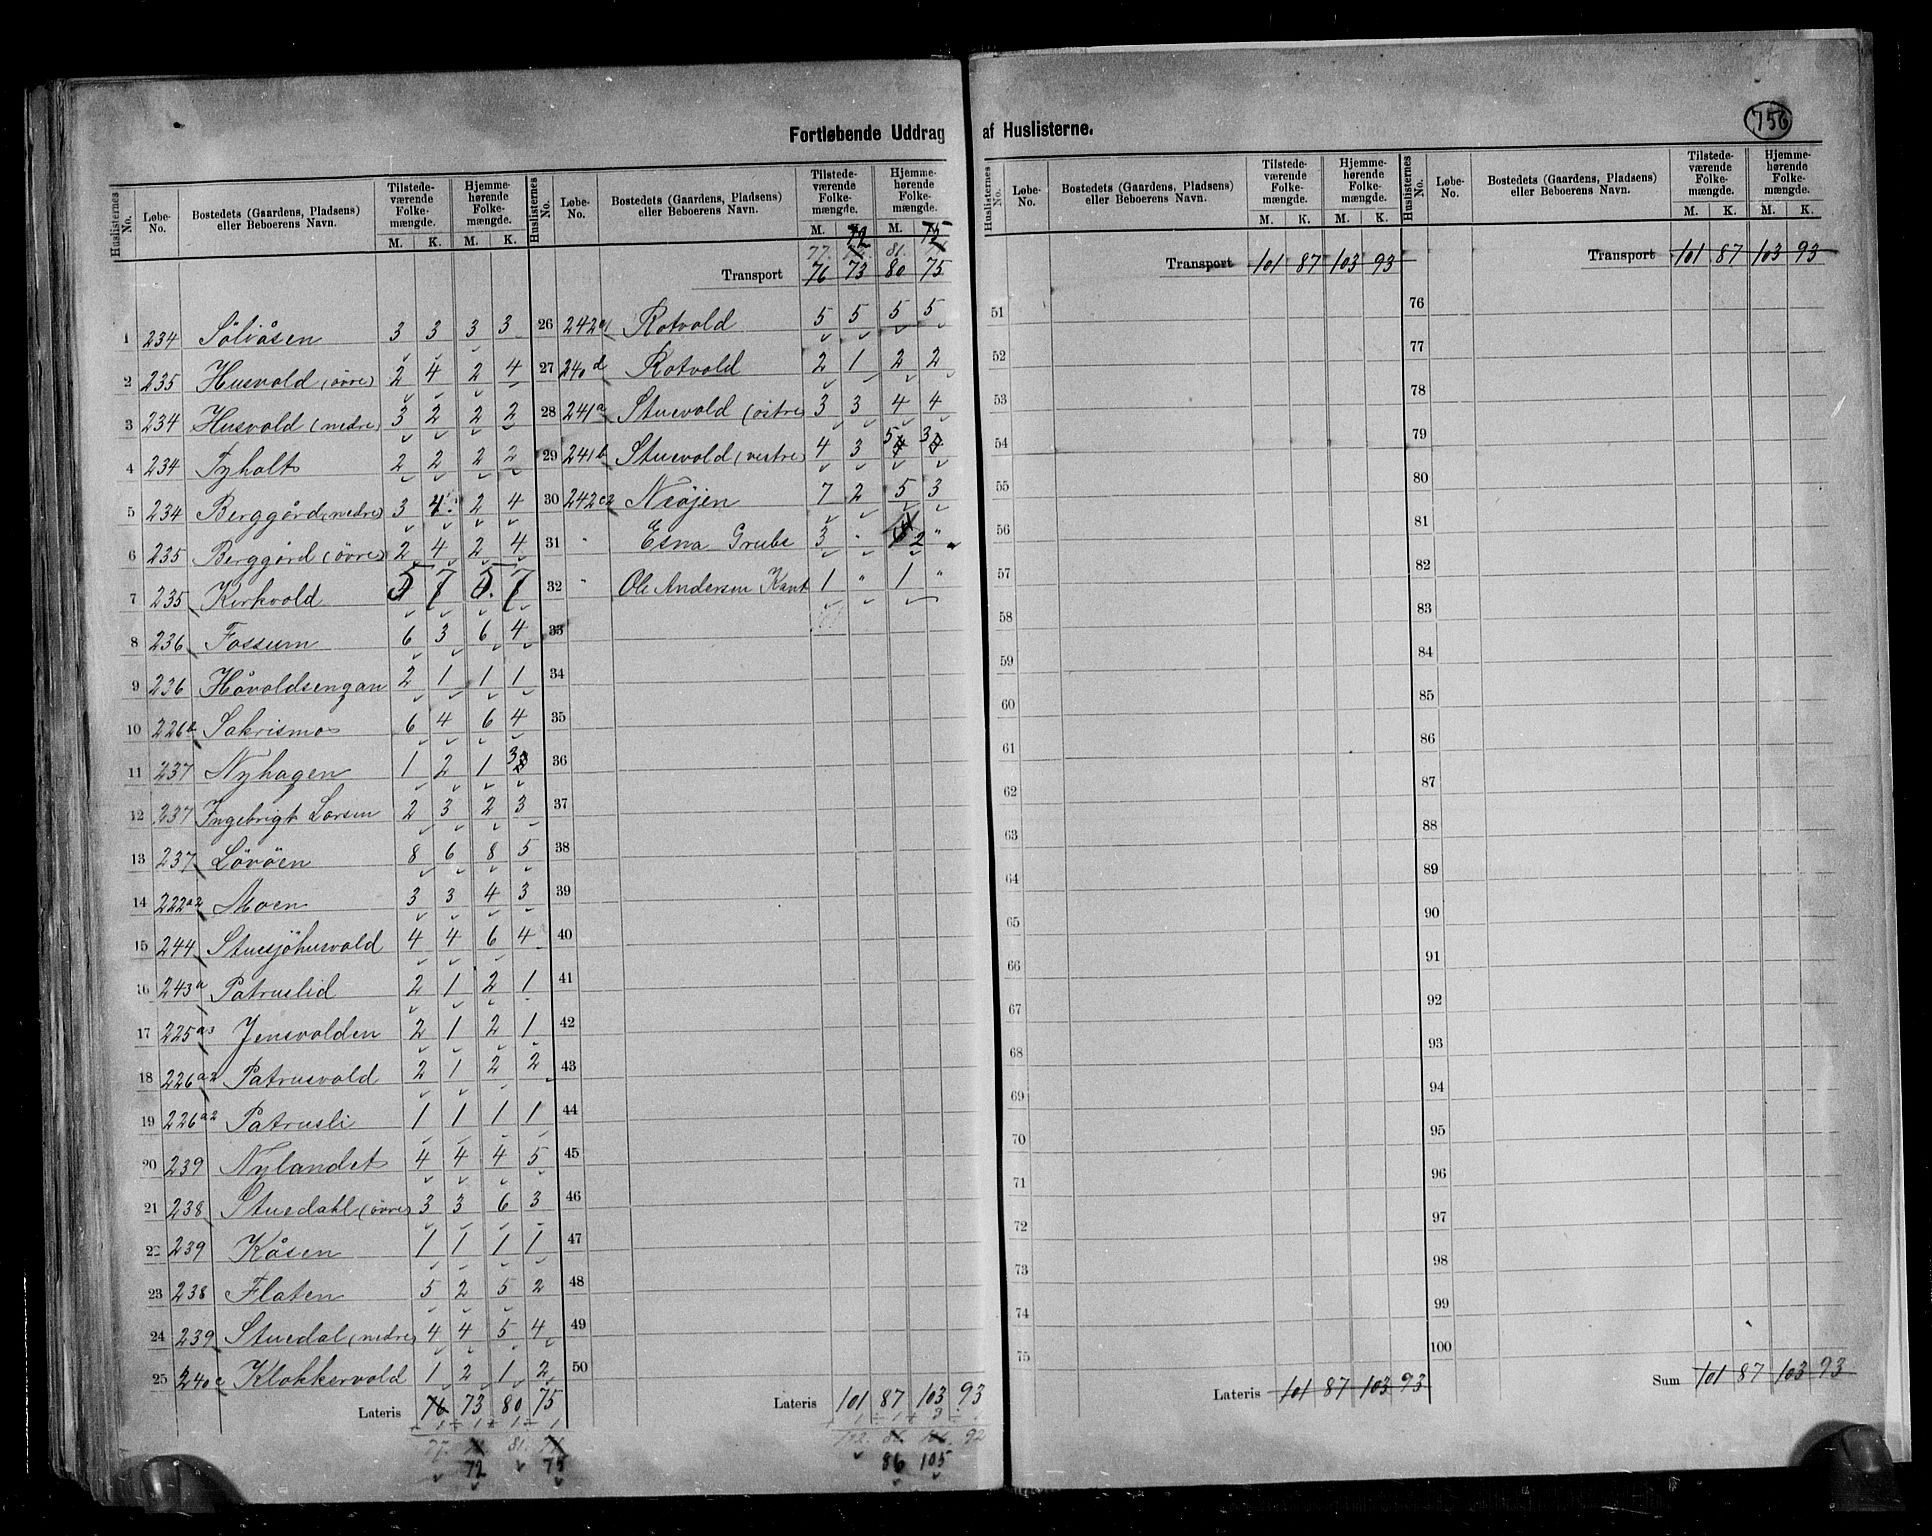 Fortløbende Uddrag af Huslisterne.
756
Huslisternes No. Løbe-No. Bostedets (Gaardens, Pladsens) eller Beboerens Navn. Tilstedeværende Folkemængde. M. K. Hjemmehørende Folkemængde. M. K.
1 234 Sölvåsen 3 3 3 3
2 235 Husvold (övre) 2 4 2 4
3 234 Husvold (nedre) 3 2 2 2
4 234 Tyholt 2 2 2 2
5 234 Berggård (nedre) 3 4 2 4
6 235 Berggård (övre) 2 4 2 4
7 235 Kirkvold 5 7 5 7
8 236 Fossum 6 3 6 4
9 236 Håvoldsengan 2 1 1 1
10 226a Sakrismo 6 4 6 4
11 237 Nyhagen 1 2 1 3
12 237 Ingebrigt Larsen 2 3 2 3
13 237 Lövöen 8 6 8 5
14 222a2 Moen 3 3 4 3
15 244 Stuesjöhusvold 4 4 6 4
16 243a Patruslid 2 1 2 1
17 225a3 Jensvolden 2 1 2 1
18 226a2 Patrusvold 2 1 2 2
19 226a2 Patrusli 1 1 1 1
20 239 Nylandet 4 4 4 5
21 238 Stuedahl (övre) 3 3 6 3
22 239 Kåsen 1 1 1 1
23 238 Flaten 5 2 5 2
24 239 Stuedal (nedre) 4 4 5 4
25 240c Klokkervold 1 2 1 2
Lateris 76 73 80 75
1 1 1 1
77. 81.
72 75
Huslisternes No. Løbe-No. Bostedets (Gaardens, Pladsens) eller Beboerens Navn. Tilstedeværende Folkemængde. M. K. Hjemmehørende Folkemængde. M. K.
72 75
77. 81.
Transport 76 73 80 75
26 242c1 Rotvold 5 5 5 5
27 240d Rotvold 2 1 2 2
28 241a Stuevold (östre) 3 3 4 4
29 241b Stuevold (vestre) 4 3 5 3
30 242c2 Nröjen 7 2 5 3
31 " Esna Grube 3 " 2 "
32 " Ole Andersen Kant 1 " 1 "
33
34
35
36
37
38
39
40
41
42
43
44
45
46
47
48
49
50
Lateris 101 87 103 93
102. 86. 92
86 105
Huslisternes No. Løbe-No. Bostedets (Gaardens, Pladsens) eller Beboerens Navn. Tilstedeværende Folkemængde. M. K. Hjemmehørende Folkemængde. M. K.
Transport 101 87 103 93
51
52
53
54
55
56
57
58
59
60
61
62
63
64
65
66
67
68
69
70
71
72
73
74
75
Lateris 101 87 103 93
Huslisternes No. Løbe-No. Bostedets (Gaardens, Pladsens) eller Beboerens Navn. Tilstedeværende Folkemængde. M. K. Hjemmehørende Folkemængde. M. K.
Transport 101 87 103 93
76
77
78
79
80
81
82
83
84
85
86
87
88
89
90
91
92
93
94
95
96
97
98
99
100
Sum 101 87 103 93